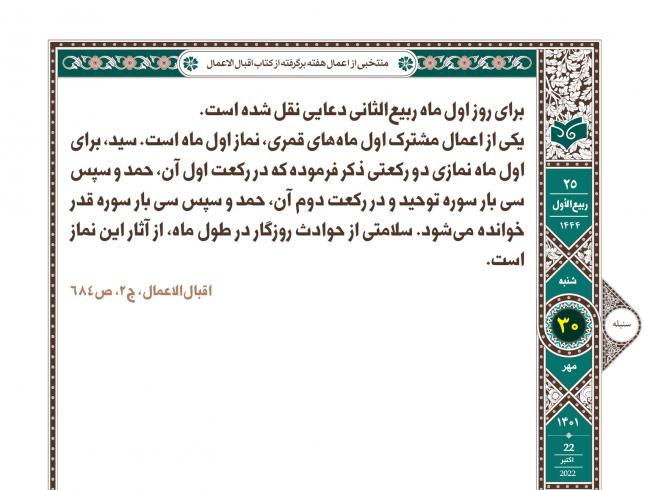 منتخبی از اعمال هفته برگرفته از کتاب اقبال الاعمال
برای روز اول ماه ربیع‌الثانی دعایی نقل شده است.
یکی از اعمال مشترک اول ماه‌های قمری، نماز اول ماه است. سید، برای
اول ماه نمازی دو رکعتی ذکر فرموده که در رکعت اول آن، حمد و سپس
سی بار سوره توحید و در رکعت دوم آن، حمد و سپس سی بار سوره قدر
خوانده می‌شود. سلامتی از حوادث روزگار در طول ماه، از آثار این نماز
است.
اقبال‌الاعمال، ج۲، ص۶۸۴
۲۵
ربیع‌الأول
۱۴۴۴
شنبه
۳۰
سنبله
مهر
۱۴۰۱
22
اکتبر
2022